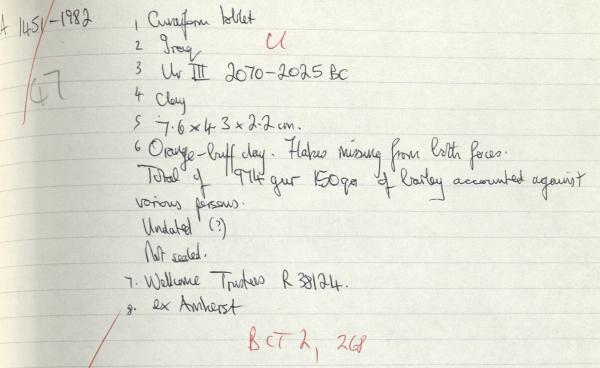 A 1451-1982
1 Cuneiform tablet
2 Iraq
U
3 Ur III 2070-2025 BC
47
4 Clay
5 7.6 x 4.3 x 2.2 cm.
6 Orange-buff clay. Flakes missing from both faces.
Total of 974 gur 150 qa of barley accounted against
various persons.
Undated (?)
Not sealed.
7. Wellcome Trustees R 38124.
8. ex Amherst
BCT 2, 268